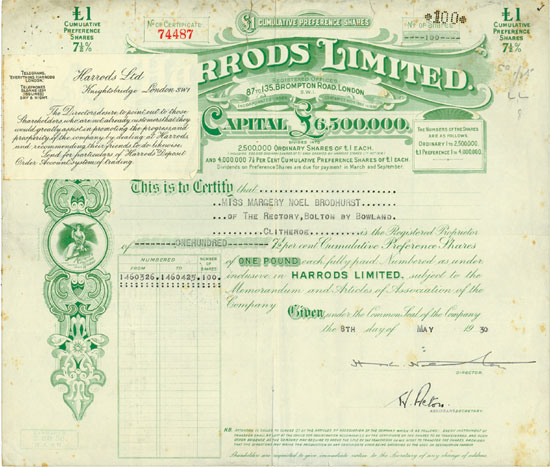 £1
CUMULATIVE
PREFERENCE
SHARES
7½%
£1 CUMULATIVE PREFERENCE SHARES
No OF CERTIFICATE
74487
*100*
--100--
£1
CUMULATIVE
PREFERENCE
SHARES
7½%
TELEGRAMS
"EVERYTHING HARRODS
LONDON"
TELEPHONES
SLOANE 1234
DAY & NIGHT
Harrods Ltd
Knightsbridge London SW1
The Directors desire to point out to those
Shareholders who are not already customers that they
would greatly assist in promoting the progress and
prosperity of the company by dealing at Harrods
and recommending their friends to do likewise.
Send for particulars of Harrods Deposit
Order Account System of trading.
RRODS LIMITED.
REGISTERED OFFICES
87 TO 135, BROMPTON ROAD, LONDON
S.W.1
CAPITAL £6,500,000.
DIVIDED INTO
2,500,000 ORDINARY SHARES OF £1 EACH.
AND 4,000,000 7½ PER CENT CUMULATIVE PREFERENCE SHARES OF £1 EACH.
Dividends on Preference Shares are due for payment in March and September.
THE NUMBERS OF THE SHARES
ARE AS FOLLOWS
ORDINARY 1 TO 2,500,000.
£1 PREFERENCE 1 TO 4,000,000.
This is to Certify that
MISS MARGERY NOEL BRODHURST
OF THE RECTORY, BOLTON BY BOWLAND,
CLITHEROE, is the Registered Proprietor
of ONEHUNDRED 7½ per cent Cumulative Preference Shares
of ONE POUND each fully paid Numbered as under
inclusive in HARRODS LIMITED, subject to the
Memorandum and Articles of Association of the
Company
NUMBERED
FROM TO
NUMBER OF SHARES
1460326 1460425 100
Given under the Common Seal of the Company
the 8TH day of MAY 1930
DIRECTOR
H. Acton
SECRETARY
N.B.
Shareholders are requested to give immediate notice to the Secretary of any change of address.